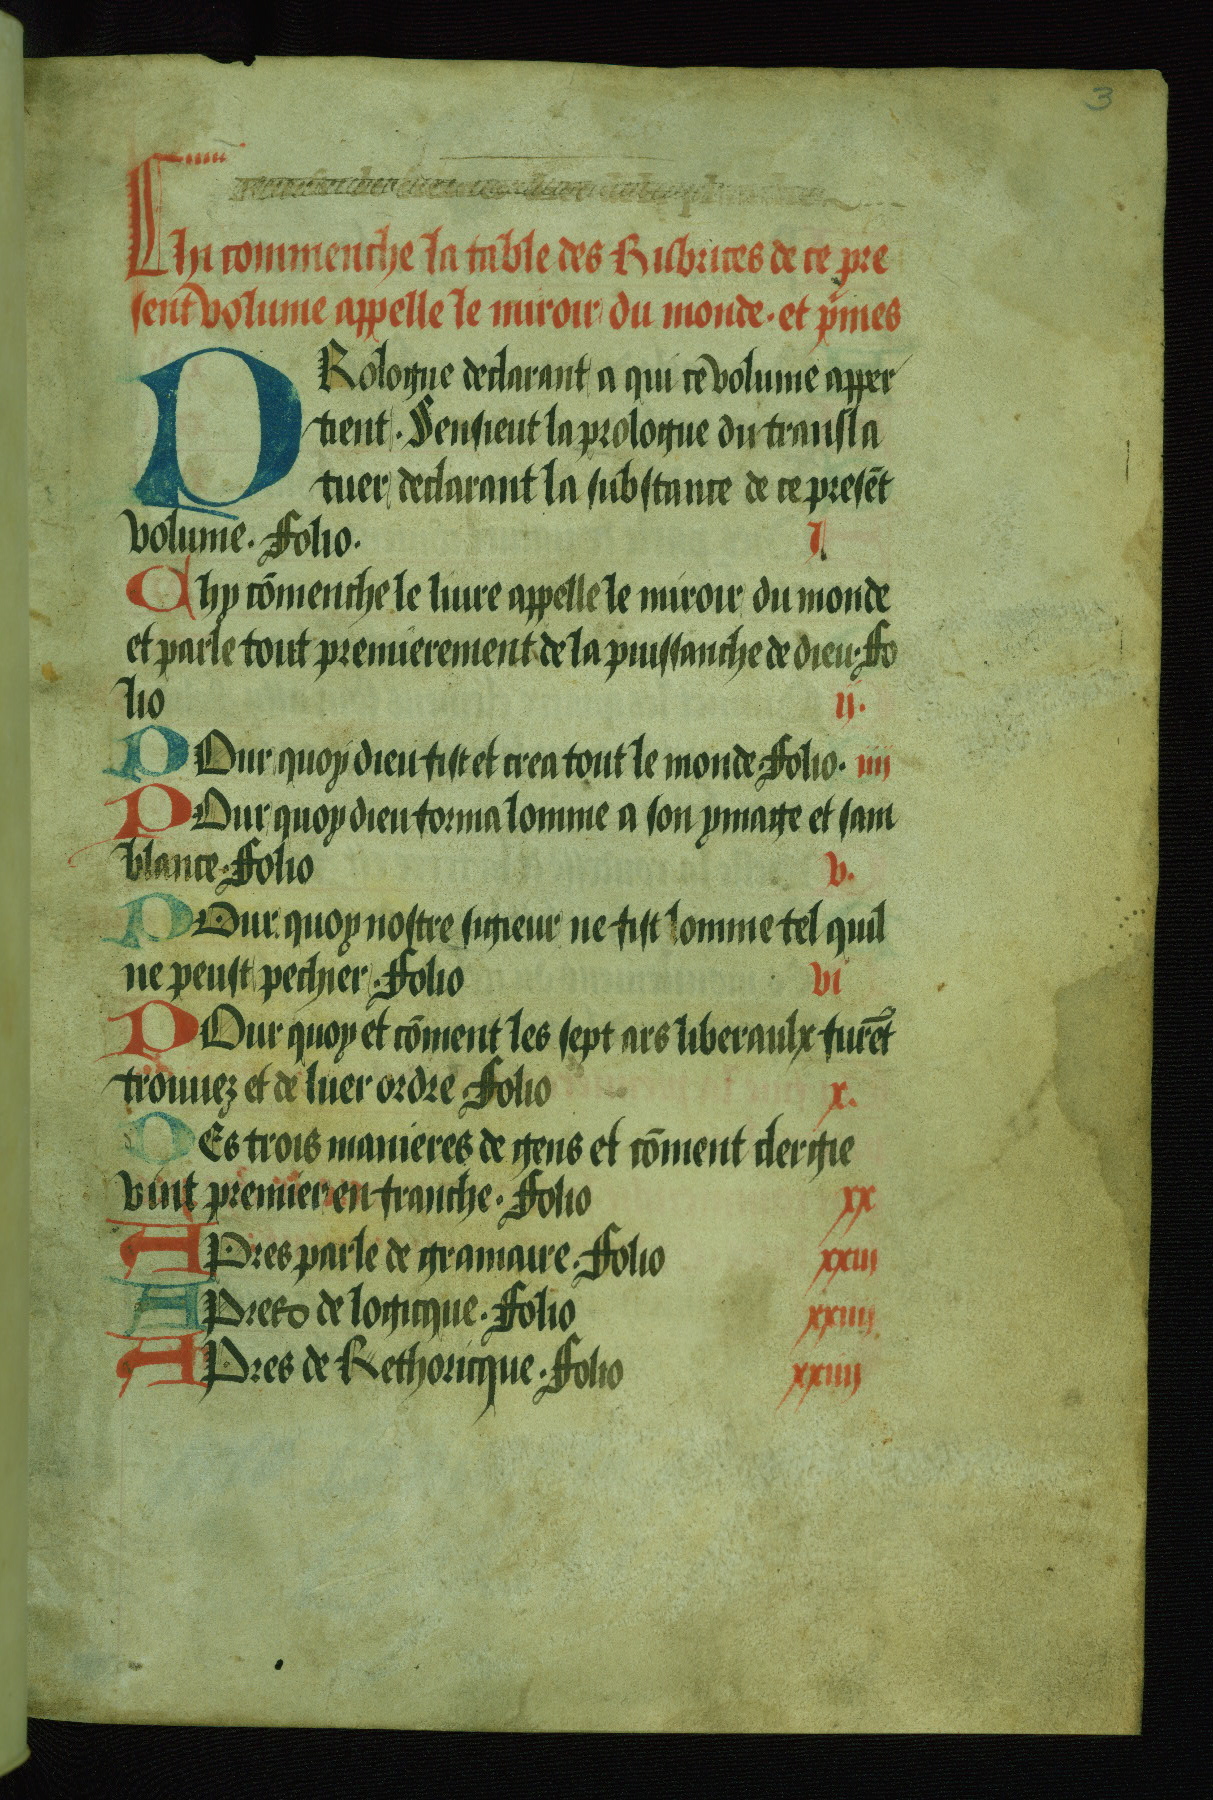 3
Chi commenche la table des Rubrices de ce pre
sent volume appelle le miroir du monde. et p̃mes
PRologue declarant a qui ce volume apper
tient. Sensieut la prologue du transla
tuer declarant la substance de ce presẽt
volume. Folio. I
Chy cõmenche le liure appelle le miroir du monde
et parle tout premierement de la puissanche de dieu. Fo
lio ii.
POur quoy dieu fist et crea tout le monde. Folio. iiii
POur quoy dieu forma lomme a son ymage et sam
blance. Folio v.
POur quoy nostre signeur ne fist lomme tel quil
ne peust pechier. Folio vi
POur quoy et cõment les sept ars liberaulx furẽt
trouuez et de luer ordre. Folio x.
DEs trois manieres de gens et cõment clergie
vint premier en franche. Folio xx
APres parle de gramaire. Folio xxiii
APres de logicque. Folio xxiiii
APres de Rethoricque. Folio xxiiii